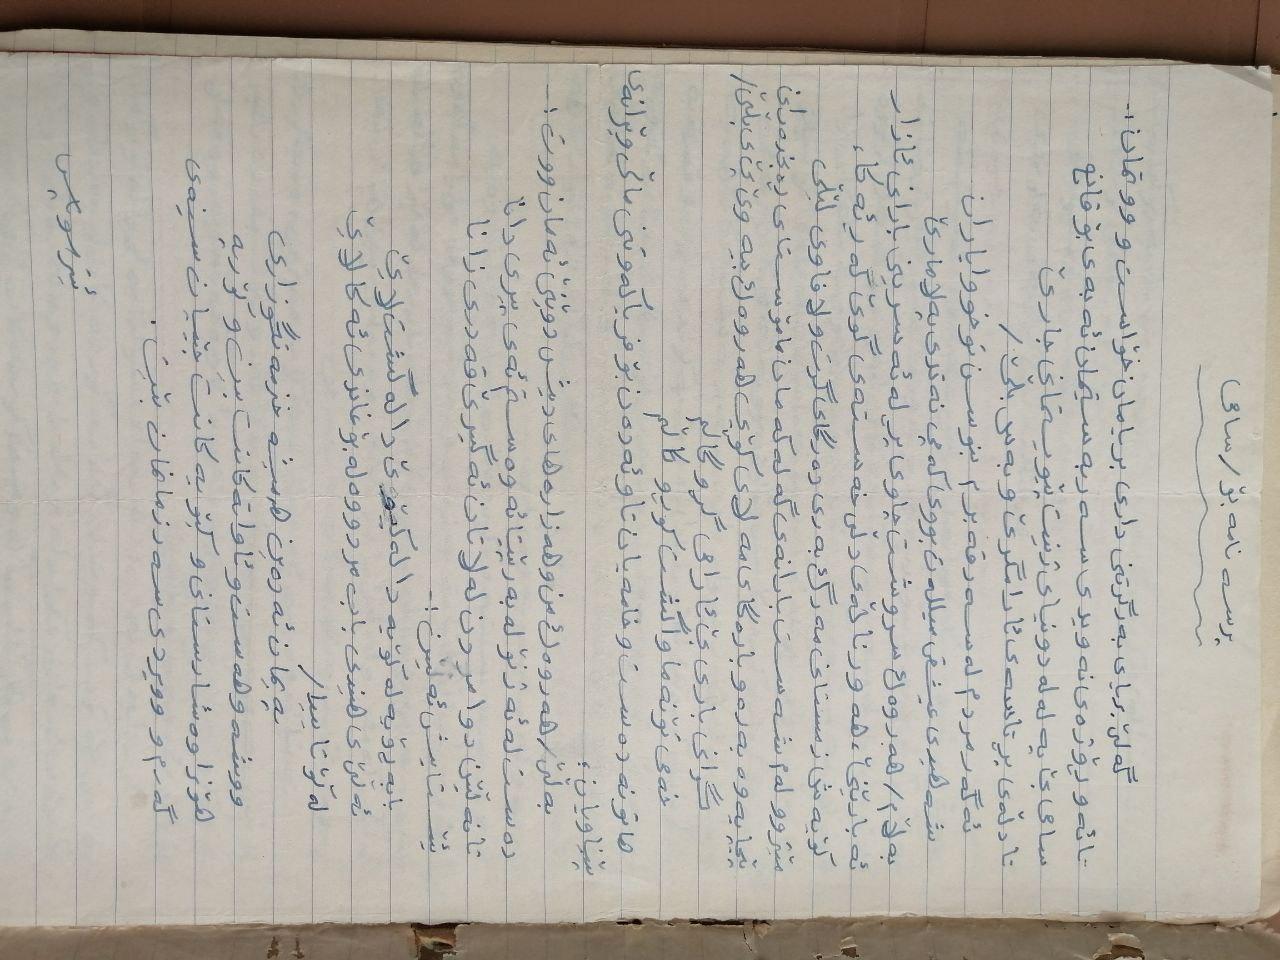 پرسه نامه بۆ/سامی
گەلێ بریای بەرگرتنی داری بریامان خۆاست و ووتمان :-
تا ئەو ڕۆژەی نەویدی سەربەستیمان ئەبەی بۆ قانع
سامی بێ پەلە لە دونیای ژنیت پێویستمانی جارێ
تا دڵەی پڕ تاسەی ئارامگرێ و بەس بڵێ /
ئەگەر مردم لەسەر قەبرم بنوسن توخووا یاران
شەهیدی عیشقی میللەت بووی کەمی نەتدی پەلامارێ
بەڵام / هەروەك سروشت چاوی پڕ لە ئەسرینی بارانی ئازار
ئەبارێنێ، هەور ناڵەی دڵی خەستەی گوێ گەڕ ئەکا،
کۆیەشی زمستانی مەرگ بەری دەرگای گرت و لافاوی لێڵی
مێژوو لەم شەست بارانەی گەلەکەمان مامۆستای ڕەنجدەرانی
پێچایەوە بەرەو بارەگای مەلای کۆیی هەروەك بیەوێ پێی بڵێ/
گرانی باری بێ ئارامی گڕوگاڵم
خەمی تۆنەما واگشت کوڕو کاڵم
هاتونە دەست و خامەیان تاو ئەدەن بۆ فریاکەوتنی ماڵی وێرانەی
پێناویان ؛
بەڵێ/ هەروەك من و هەزارەهای دیش دوێنێ ئەمان ووت :-
دەست لەئەژنۆ لەبەرپێتا ئەوەستم ئەی پیری دانا
تا نەڵێن دوا مردن لەلاتان ئەگیرێ قەدری زانا
ئێستایش ئەڵێن :-
بابەڕۆیە لە کۆیە دا لە کێوێ دا لە گشت لایێ
ئەڵێی هیندی باب مردووە لە بۆ غاندی ئەکا لایێ
لە کۆتاییدا/
پەیمان ئەدەین هەمیشە خزمەتگوزاری
ووشە وهەست و ئاواتەکانت بین و کۆڕیە
هۆنراوە شارستانی و کێویەکانت جێیان سینەی
گەرم و وویردی سەر زمانمان بێت .